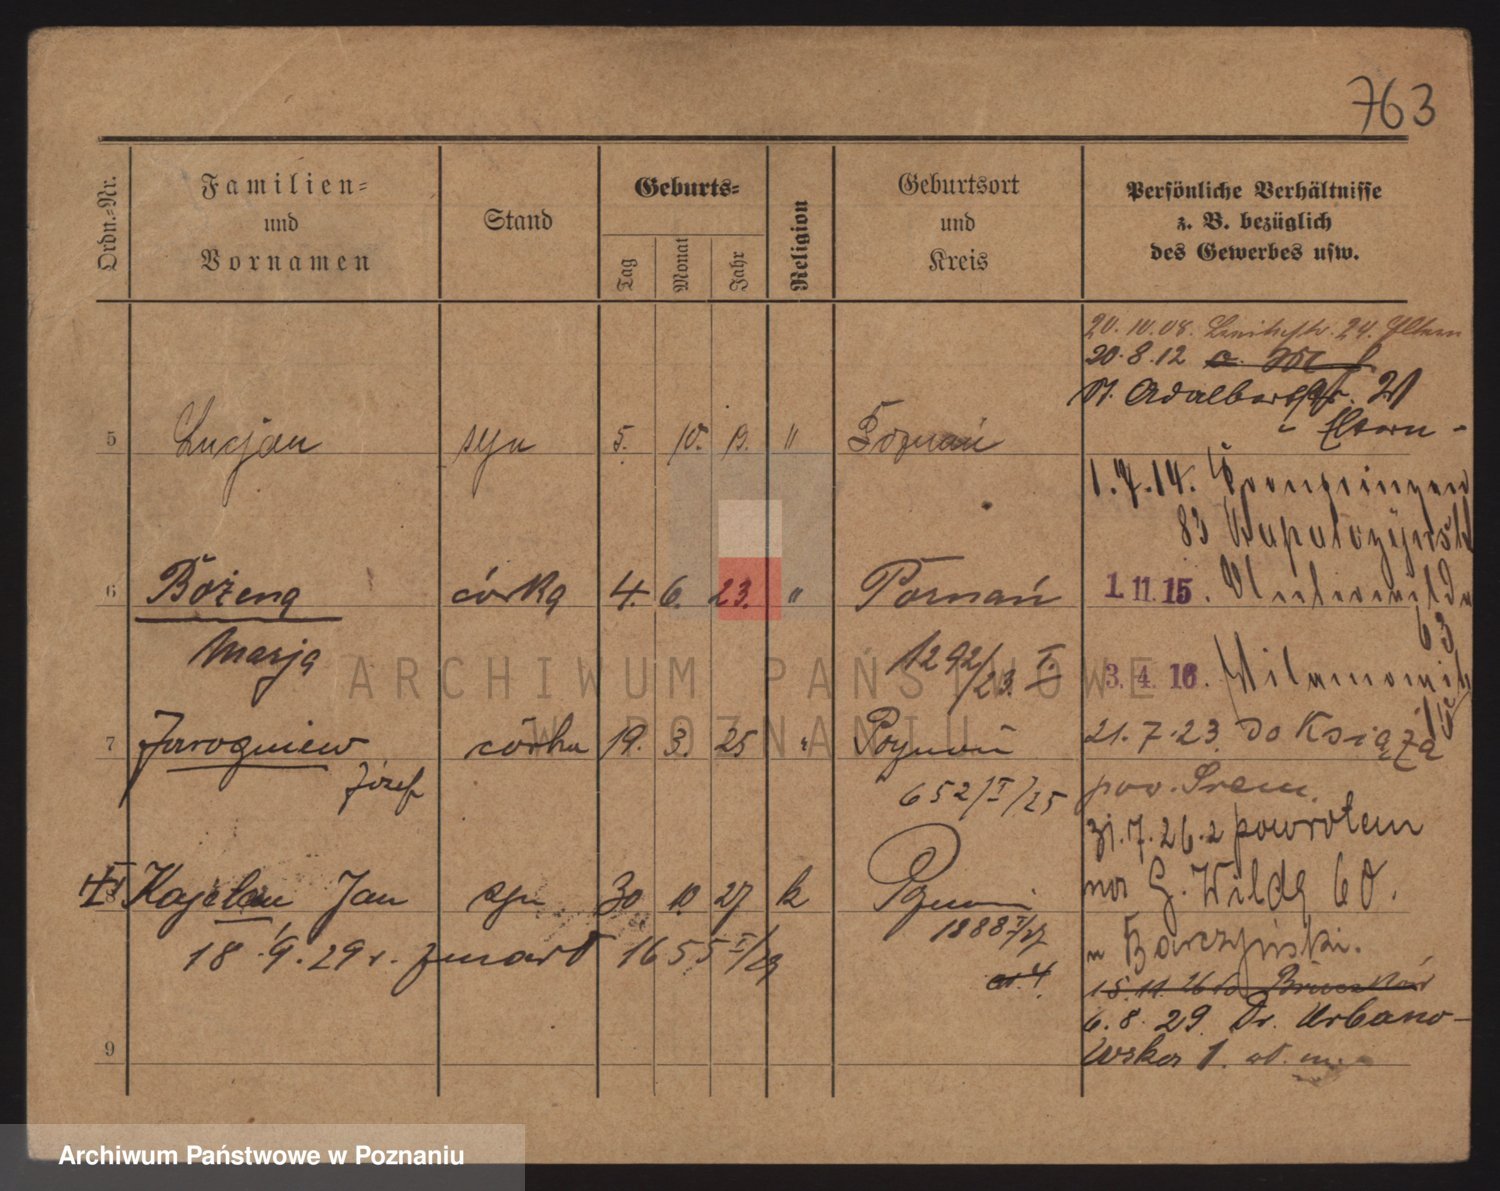 763
Ordn.=Nr.
Familien=
und
Vornamen
Stand
Geburts=
Tag
Monat
Jahr
Religion
Geburtsort
und
Kreis
Persönliche Verhältnisse
z. B. bezüglich
des Gewerbes usw.
20.10.08. 24. Eltern
20.8.12
St. Adalbertstr. 21
Eltern -
5 Lucjan syn 5. 10. 19. " Poznań
1.7.14. Kronprinzen
83
6 Bożena córka 4. 6. 23. " Poznań
1.11.15.
63
Marja
1292/23. I.
3.4.16.
7 Jarogniew córka 19. 3. 25 " Poznań
21.7.23 do Książa
Józef
652/I/25
pow. Śrem.
31.7.26 z powrotem
8 Kajetan Jan syn 30 10 27 k Poznań
na G. Wildę 60.
1888 I/27
18.9.29 r. zmarł 1655 I/29
u Barczyński.
15.11.26 do
6.8.29 Dr. Urbano-
9
wska 1.
ARCHIWUM PAŃSTWOWE
W POZNANIU
Archiwum Państwowe w Poznaniu